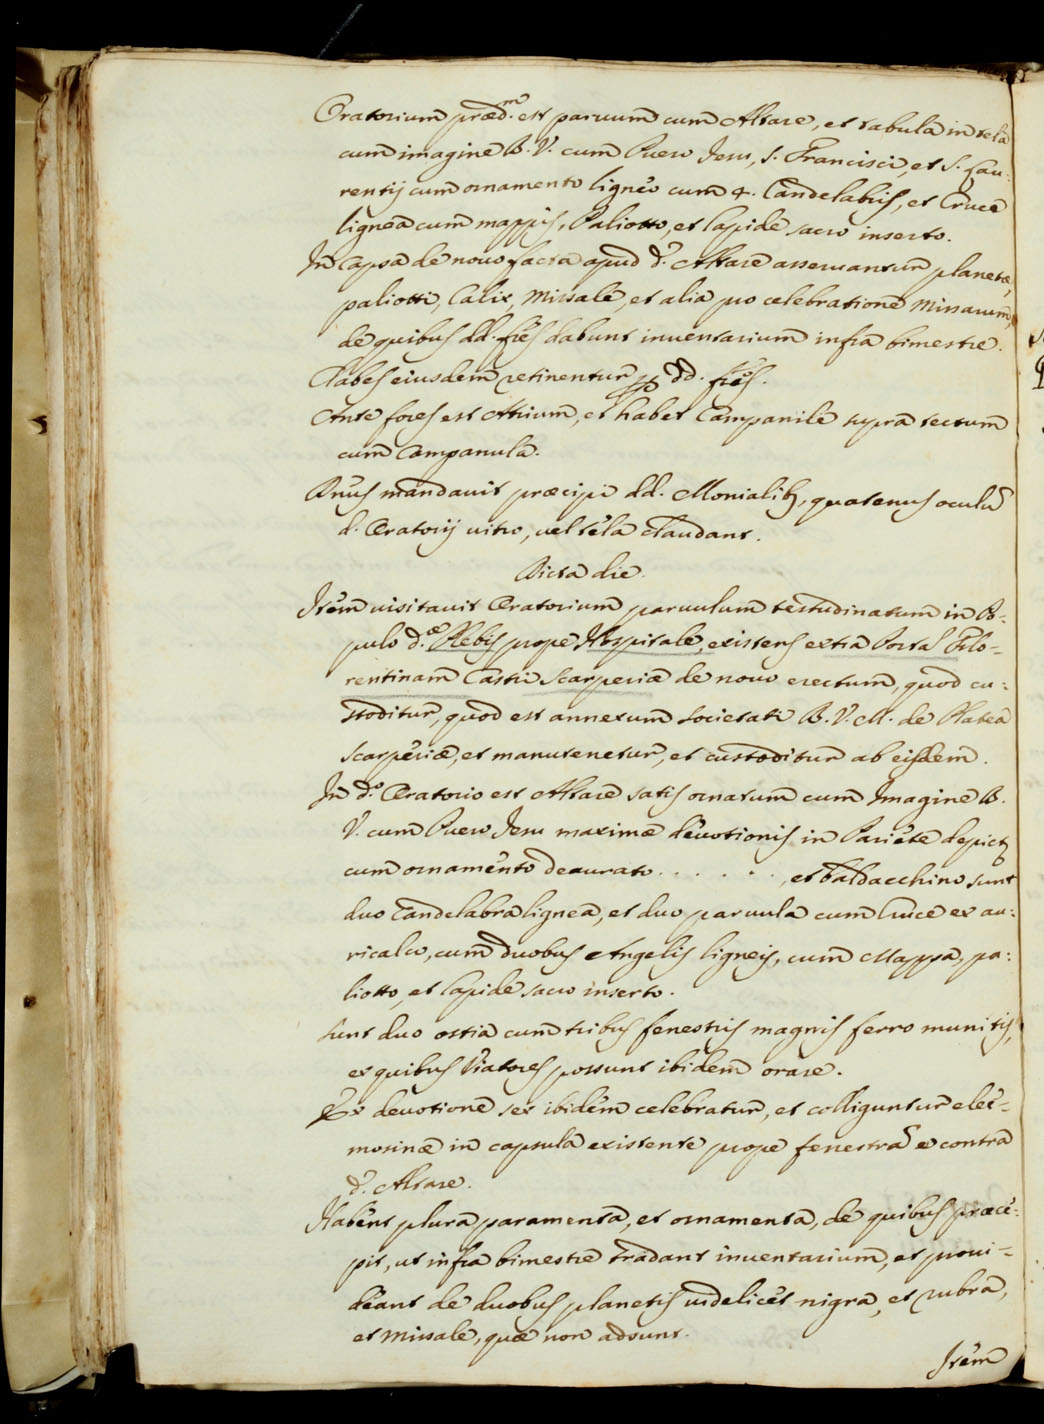 Oratorium præd.m est paruum cum Altare, et tabula in tela
cum imagine B. V. cum Puero Jesu, S. Francisci, et S. Lau:
rentij cum ornamento ligneo cum 4. Candelabris, et Cruce
lignea cum mappis, Paliotto, et lapide sacro inserto.
In Capsa de nouo facta apud d.º Altare asseruantur planetæ,
paliotti, Calix, Missale, et alia pro celebratione Missarum,
de quibus dd. fres dabunt inuentarium infra bimestre.
Claues eiusdem retinentur per dd. fres.
Ante fores est Atrium, et habet Campanile supra tectum
cum Campanula.
Dnus mandauit præcipi dd. Monialib, quatenus oculū
d. Oratorij vitro, uel tela claudant.
Dicta die.
Item visitauit Oratorium paruulum testudinatum in Po-
pulo d.æ Plebis prope Hospitale, existens extra Portā Flo-
rentinam Castri Scarperiæ de nouo erectum, quod cu:
stoditur, quod est annexum Societati B. V. M. de Platea
Scarperiæ, et manutenetur, et custoditur ab eisdem.
In d.º Oratorio est Altare satis ornatum cum Imagine B.
V. cum Puero Jesu maximæ deuotionis in Pariete depict
cum ornamento deaurato . . . . . . , et baldacchino sunt
duo Candelabra lignea, et duo paruula cum Cruce ex au:
ricalco, cum duobus Angelis ligneis, cum Mappa, pa:
liotto, et lapide sacro inserto.
Sunt duo ostia cum tribus fenestris magnis ferro munitis,
ex quibus Viatores possunt ibidem orare.
Ex deuotione ser ibidem celebratur, et colliguntur elee-
mosinæ in capsula existente prope fenestrā e contra
d. Altare.
Habent plura paramenta, et ornamenta, de quibus præce:
pit, ut infra bimestre tradant inuentarium, et proui-
deant de duobus planetis videlicet nigra, et rubra,
et Missale, quæ non adsunt.
Item